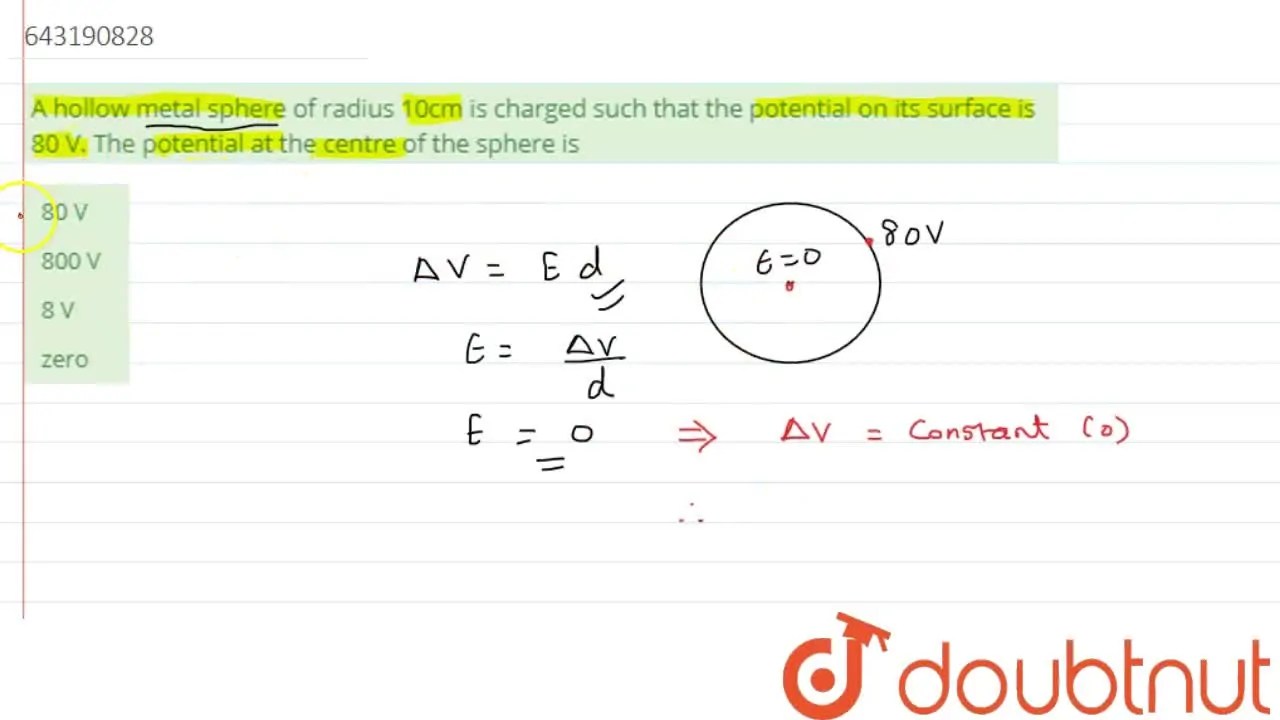 643190828
A hollow metal sphere of radius 10cm is charged such that the potential on its surface is
80 V. The potential at the centre of the sphere is
80 V
800 V
8 V
zero
ΔV = E d
E = ΔV/d
E = 0 ⇒ ΔV = Constant (0)
∴
80V
E=0
doubtnut